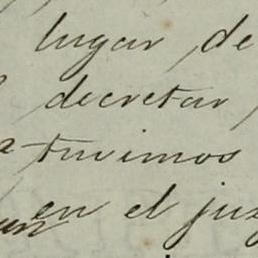 lugar de
decretar
tuvimos
en el juz